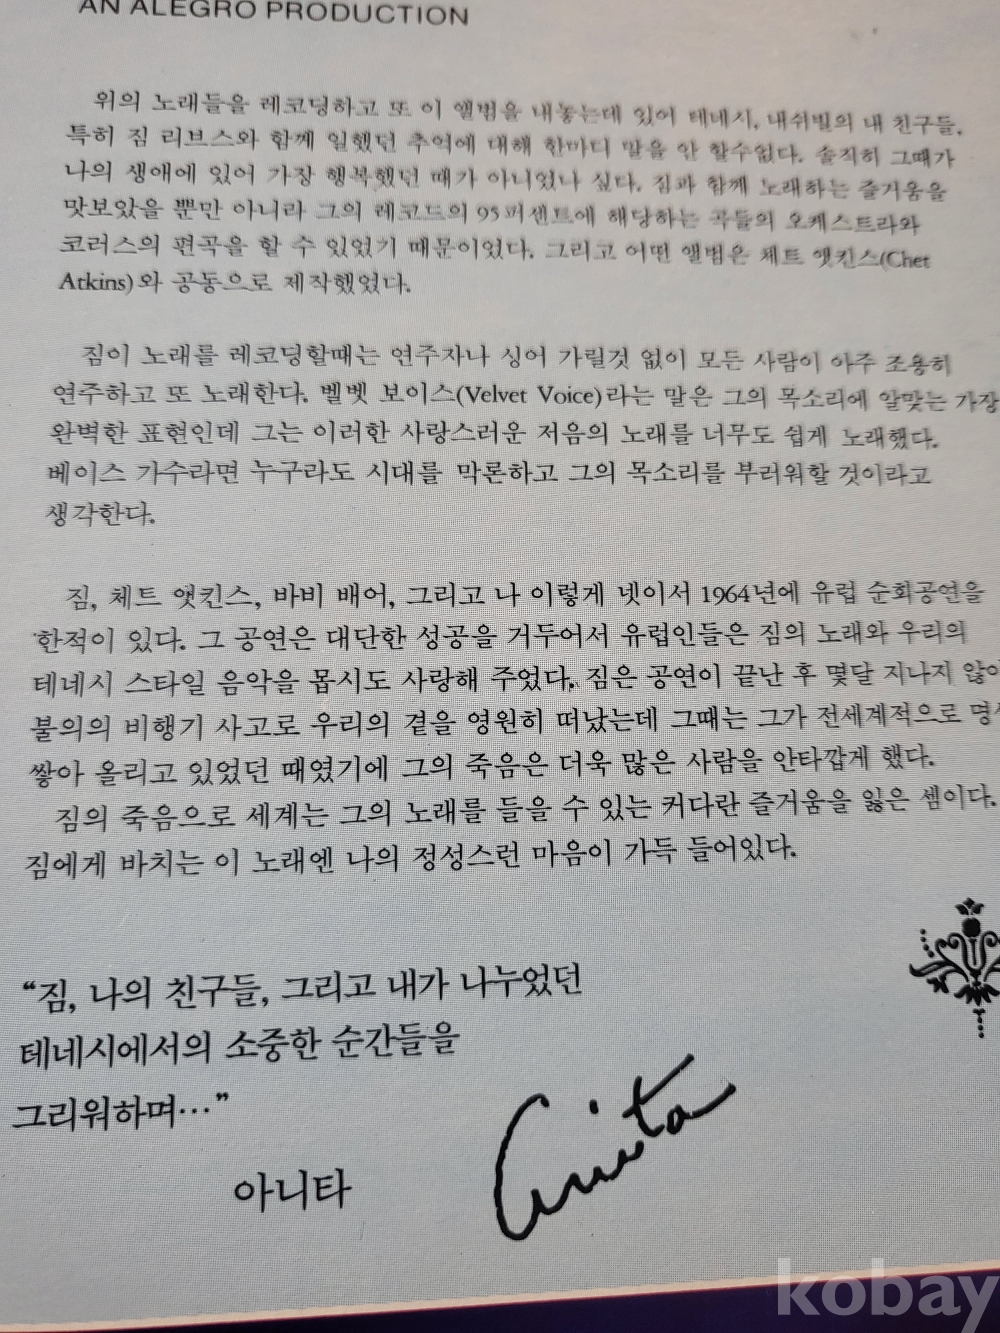 AN ALEGRO PRODUCTION
위의 노래들을 레코딩하고 또 이 앨범을 내놓는데 있어 테네시, 내쉬빌의 내 친구들,
특히 짐 리브스와 함께 일했던 추억에 대해 한마디 말을 안 할수없다. 솔직히 그때가
나의 생애에 있어 가장 행복했던 때가 아니었나 싶다. 짐과 함께 노래하는 즐거움을
맛보았을 뿐만 아니라 그의 레코드의 95퍼센트에 해당하는 곡들의 오케스트라와
코러스의 편곡을 할 수 있었기 때문이었다. 그리고 어떤 앨범은 체트 앳킨스(Chet
Atkins)와 공동으로 제작했었다.
짐이 노래를 레코딩할때는 연주자나 싱어 가릴것 없이 모든 사람이 아주 조용히
연주하고 또 노래한다. 벨벳 보이스(Velvet Voice)라는 말은 그의 목소리에 알맞는 가장
완벽한 표현인데 그는 이러한 사랑스러운 저음의 노래를 너무도 쉽게 노래했다.
베이스 가수라면 누구라도 시대를 막론하고 그의 목소리를 부러워할 것이라고
생각한다.
짐, 체트 앳킨스, 바비 배어, 그리고 나 이렇게 넷이서 1964년에 유럽 순회공연을
한적이 있다. 그 공연은 대단한 성공을 거두어서 유럽인들은 짐의 노래와 우리의
테네시 스타일 음악을 몹시도 사랑해 주었다. 짐은 공연이 끝난 후 몇달 지나지 않아
불의의 비행기 사고로 우리의 곁을 영원히 떠났는데 그때는 그가 전세계적으로
쌓아 올리고 있었던 때였기에 그의 죽음은 더욱 많은 사람을 안타깝게 했다.
짐의 죽음으로 세계는 그의 노래를 들을 수 있는 커다란 즐거움을 잃은 셈이다.
짐에게 바치는 이 노래엔 나의 정성스런 마음이 가득 들어있다.
“짐, 나의 친구들, 그리고 내가 나누었던
테네시에서의 소중한 순간들을
그리워하며…”
아니타
Anita
kobay